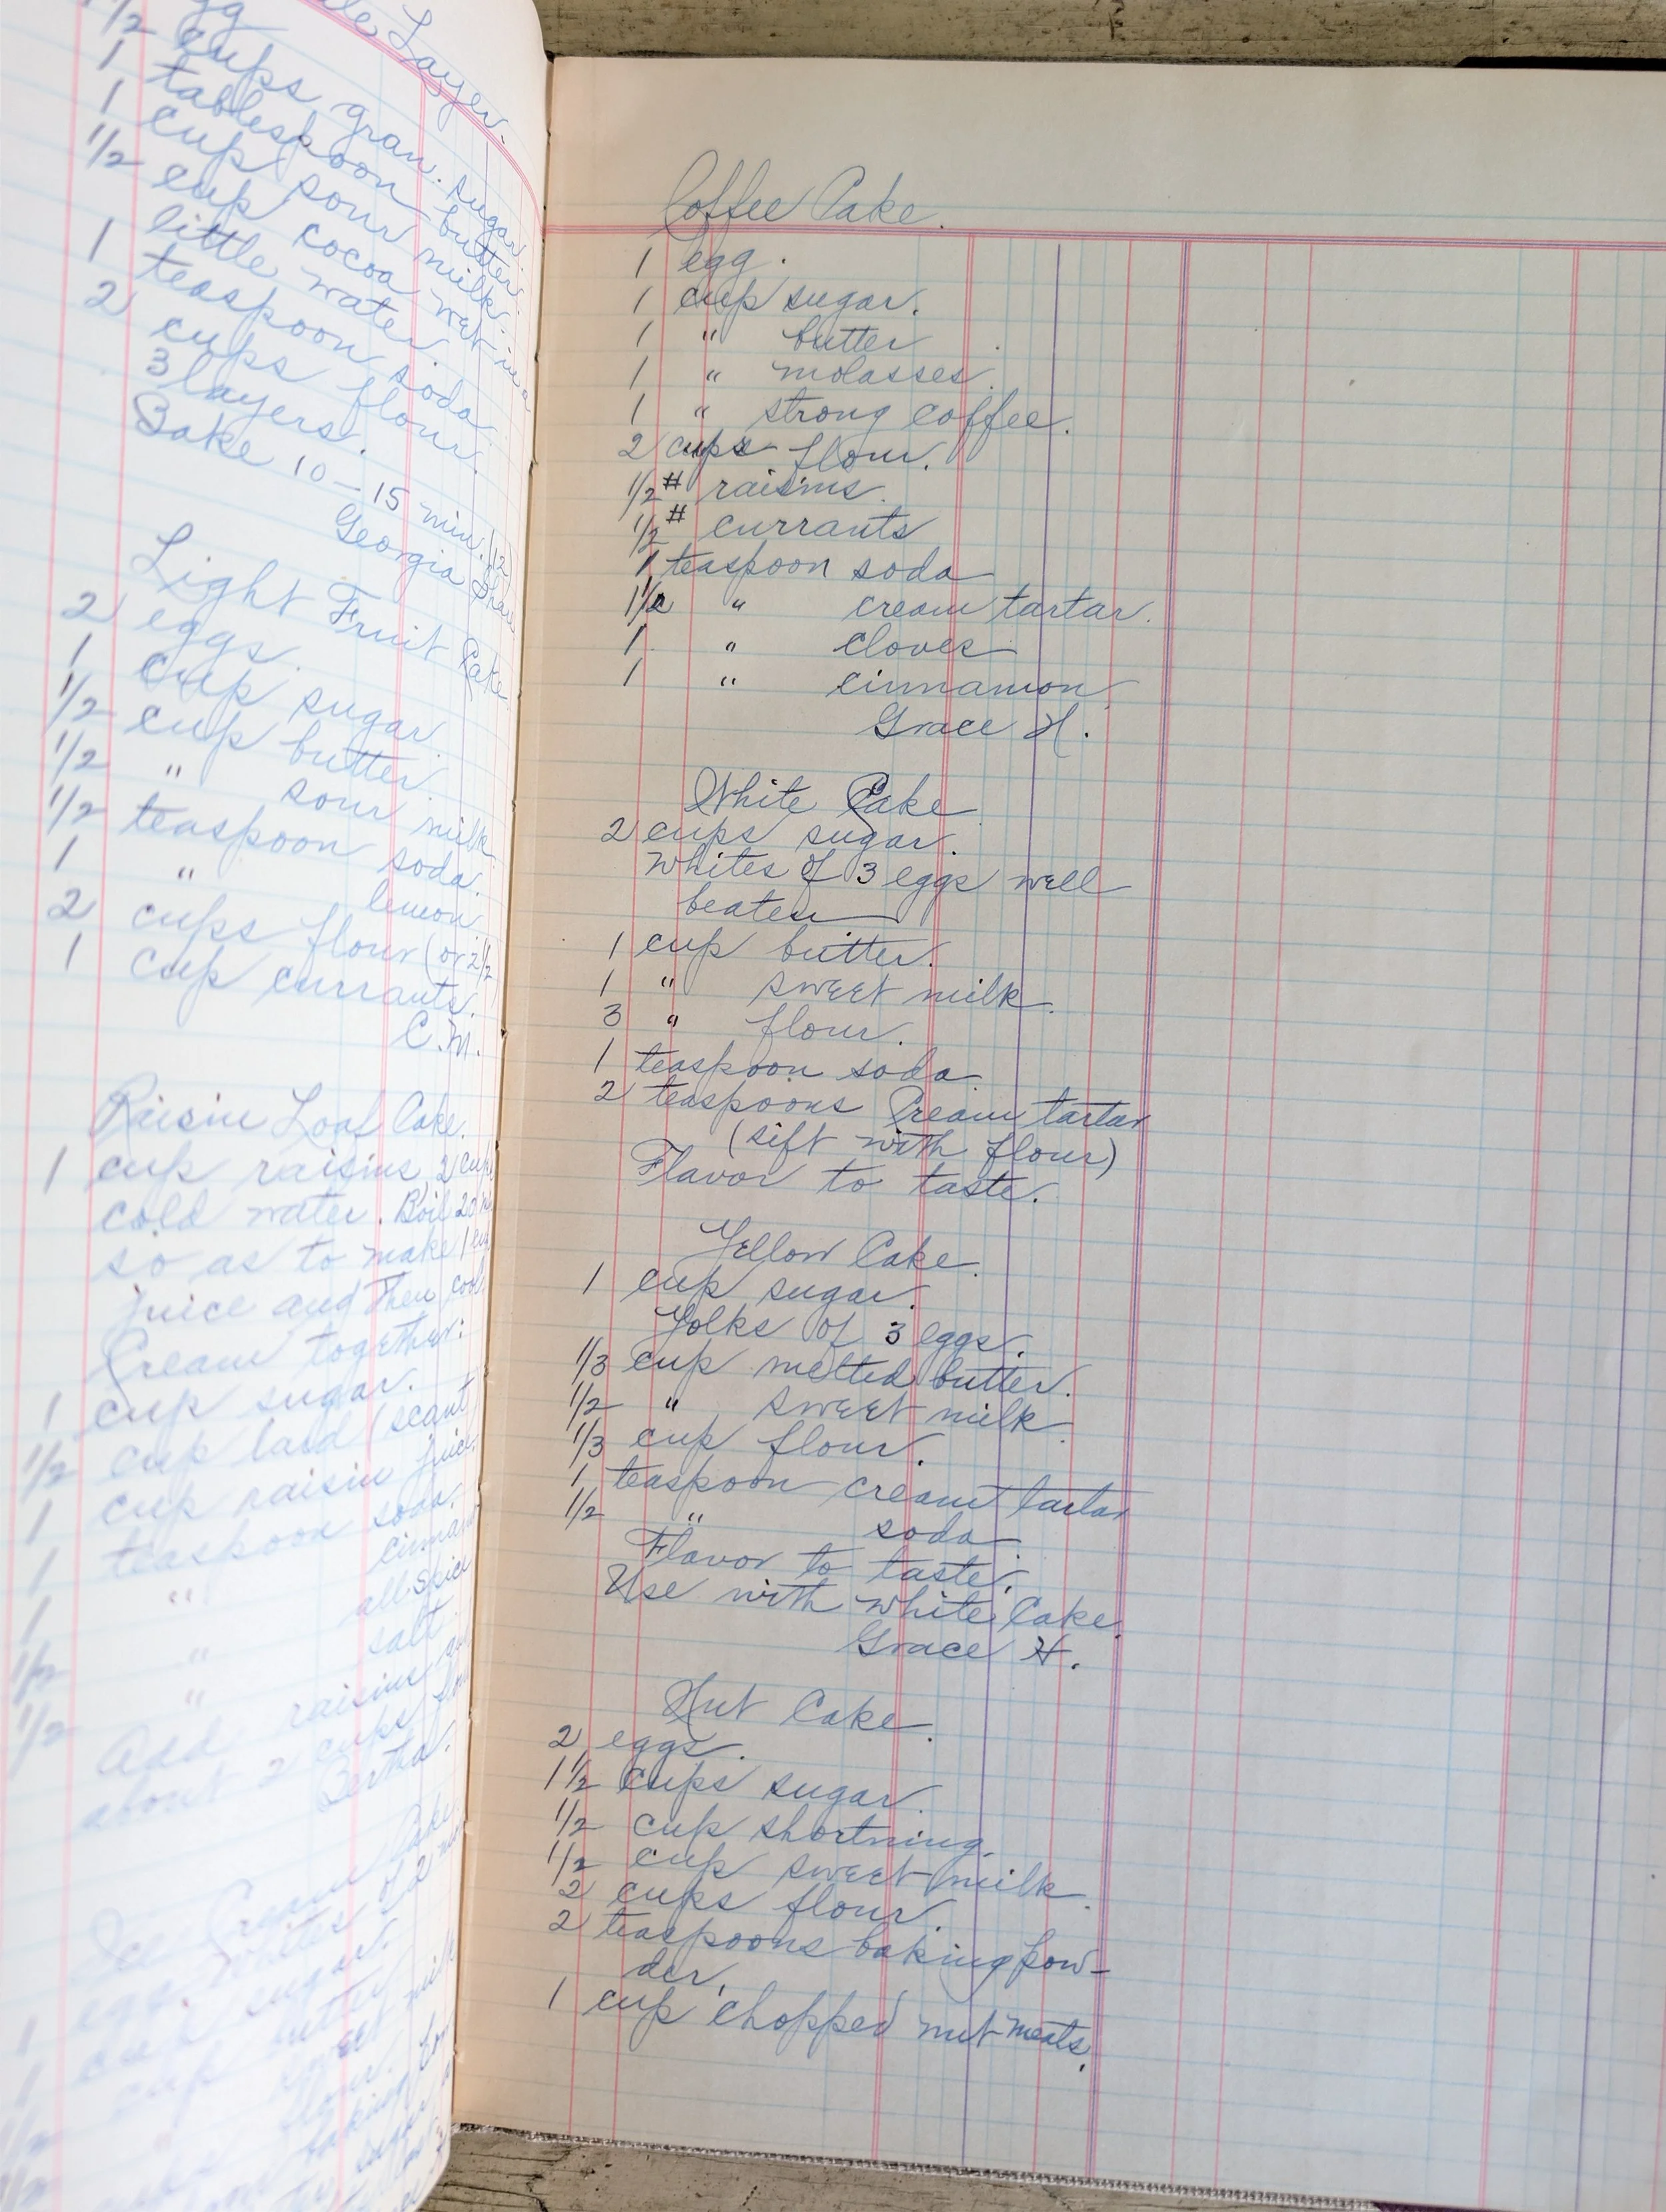 Layer.
1/2 cups gran. sugar.
1 tablespoon butter.
1 cup sour milk.
1/2 cup cocoa wet in a
little water.
1 teaspoon soda.
2 cups flour.
3 layers.
Bake 10-15 min.
Georgia
Light Fruit Cake
2 eggs.
1 cup sugar
1/2 cup butter.
1/2 " sour milk
1/2 teaspoon soda.
1 " lemon
2 cups flour (or 2 1/2
1 cup currants.
C.M.
Raisin Loaf Cake.
1 cup raisins, 2 cups
cold water. Boil 20
so as to make 1 cup
juice and then cool
Cream together:
1 cup sugar.
1/2 cup lard (scant
1 cup raisin juice
1 teaspoon soda.
1 "
1 " allspice
1/2 " salt
1/2
Add raisins
about 2 cups
Bertha.
Ice Cream Cake
Coffee Cake.
1 egg.
1 cup sugar.
1 " butter
1 " molasses.
1 " strong coffee.
2 cups flour.
1/2 # raisins.
1/2 # currants
1 teaspoon soda
1 1/2 " cream tartar.
1 " cloves
1 " cinnamon
Grace H.
White Cake
2 cups sugar.
Whites of 3 eggs well
beaten
1 cup butter.
1 " sweet milk.
3 " flour.
1 teaspoon soda.
2 teaspoons Cream tartar
(sift with flour)
Flavor to taste.
Yellow Cake.
1 cup sugar.
Yolks of 3 eggs.
1/3 cup melted butter.
1/2 " sweet milk.
1/3 cup flour.
1 teaspoon cream tartar
1/2 " soda
Flavor to taste.
Use with white Cake.
Grace H.
Nut Cake.
2 eggs.
1 1/2 cups sugar.
1/2 cup shortning.
1/2 cup sweet milk.
2 cups flour.
2 teaspoons baking pow-
der.
1 cup chopped nut meats.